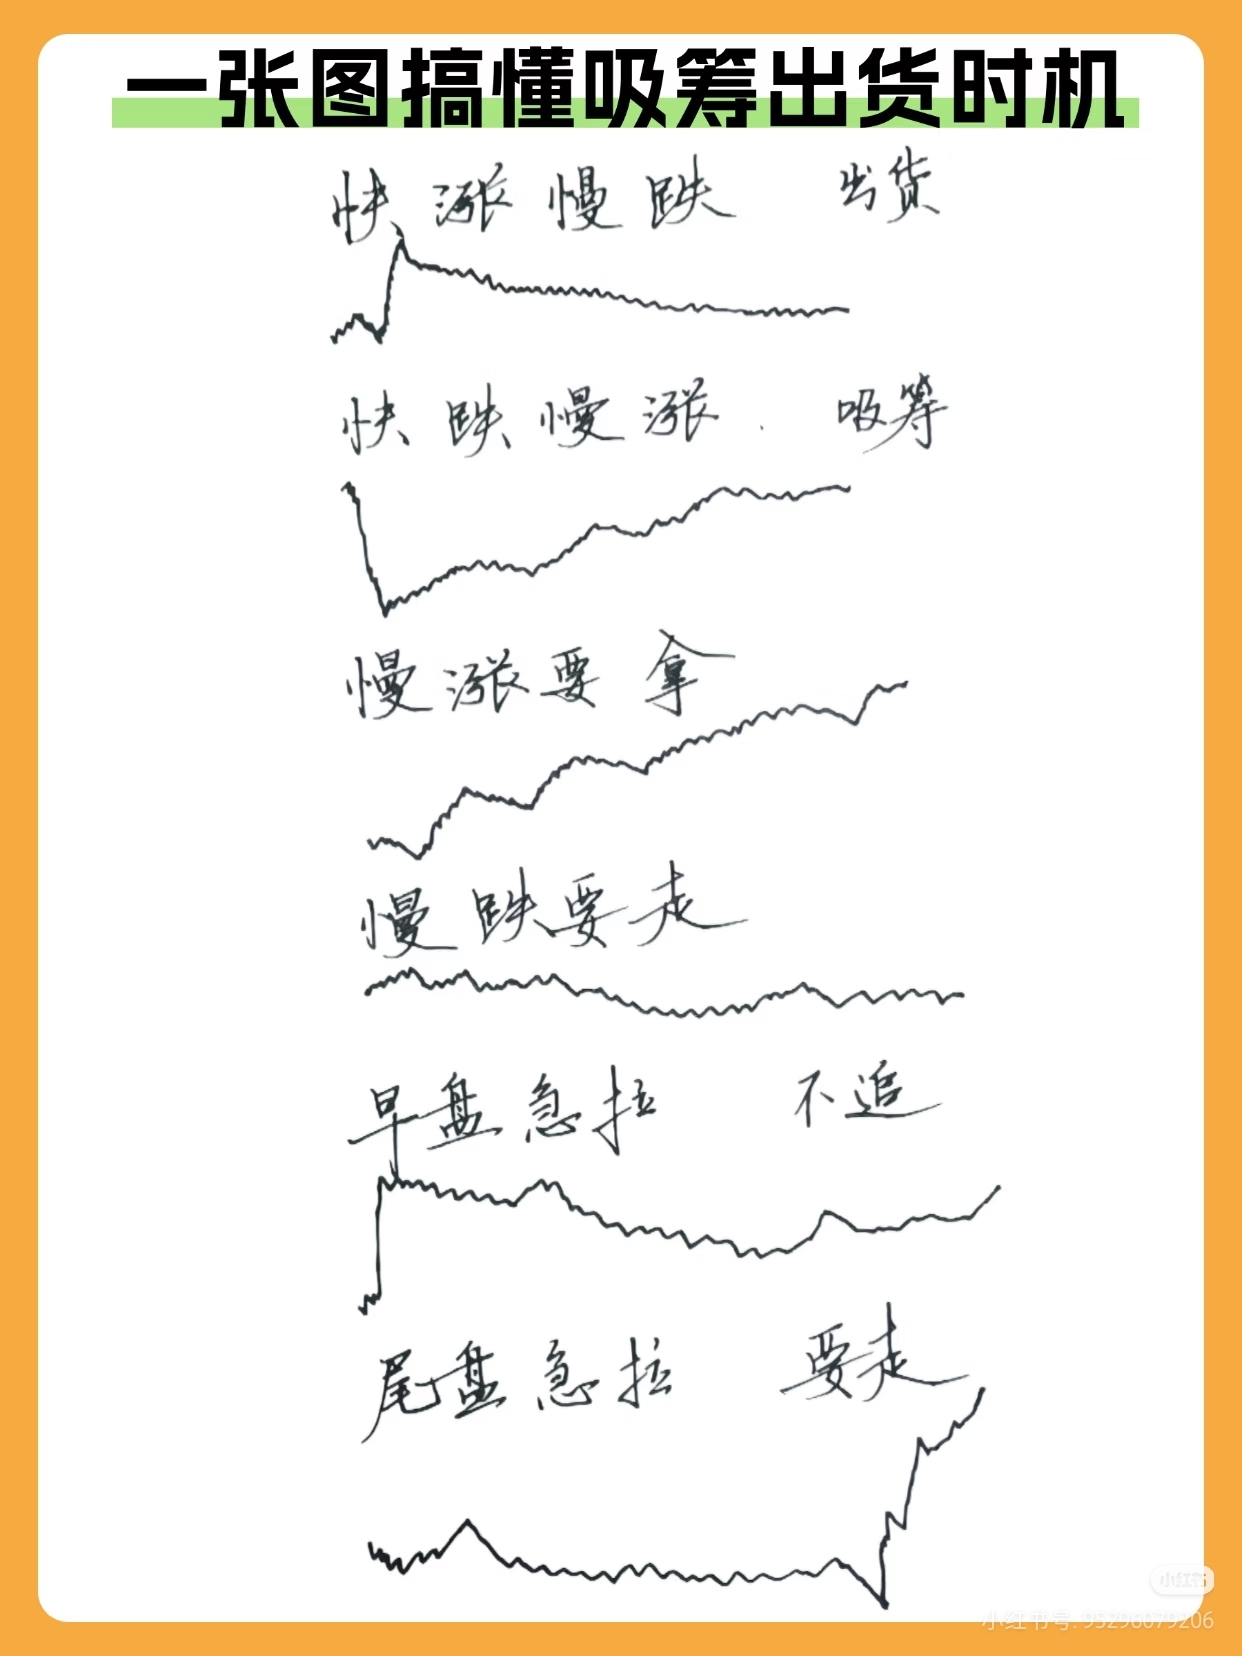 一张图搞懂吸筹出货时机
快涨慢跌 出货
快跌慢涨. 吸筹
慢涨要拿
慢跌要走
早盘急拉 不追
尾盘急拉 要走
小红书
小红书号: 95296079206